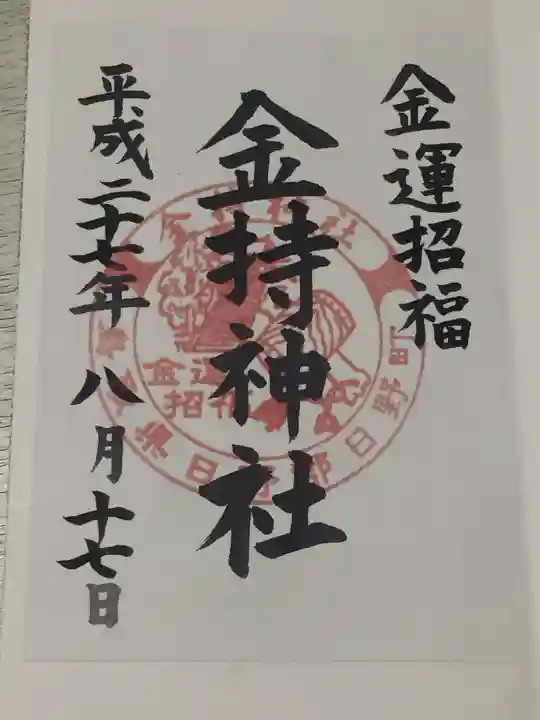 金運招福
金持神社
平成二十七年八月十七日
金持神社
金運
招福
鳥取県日野郡日野町